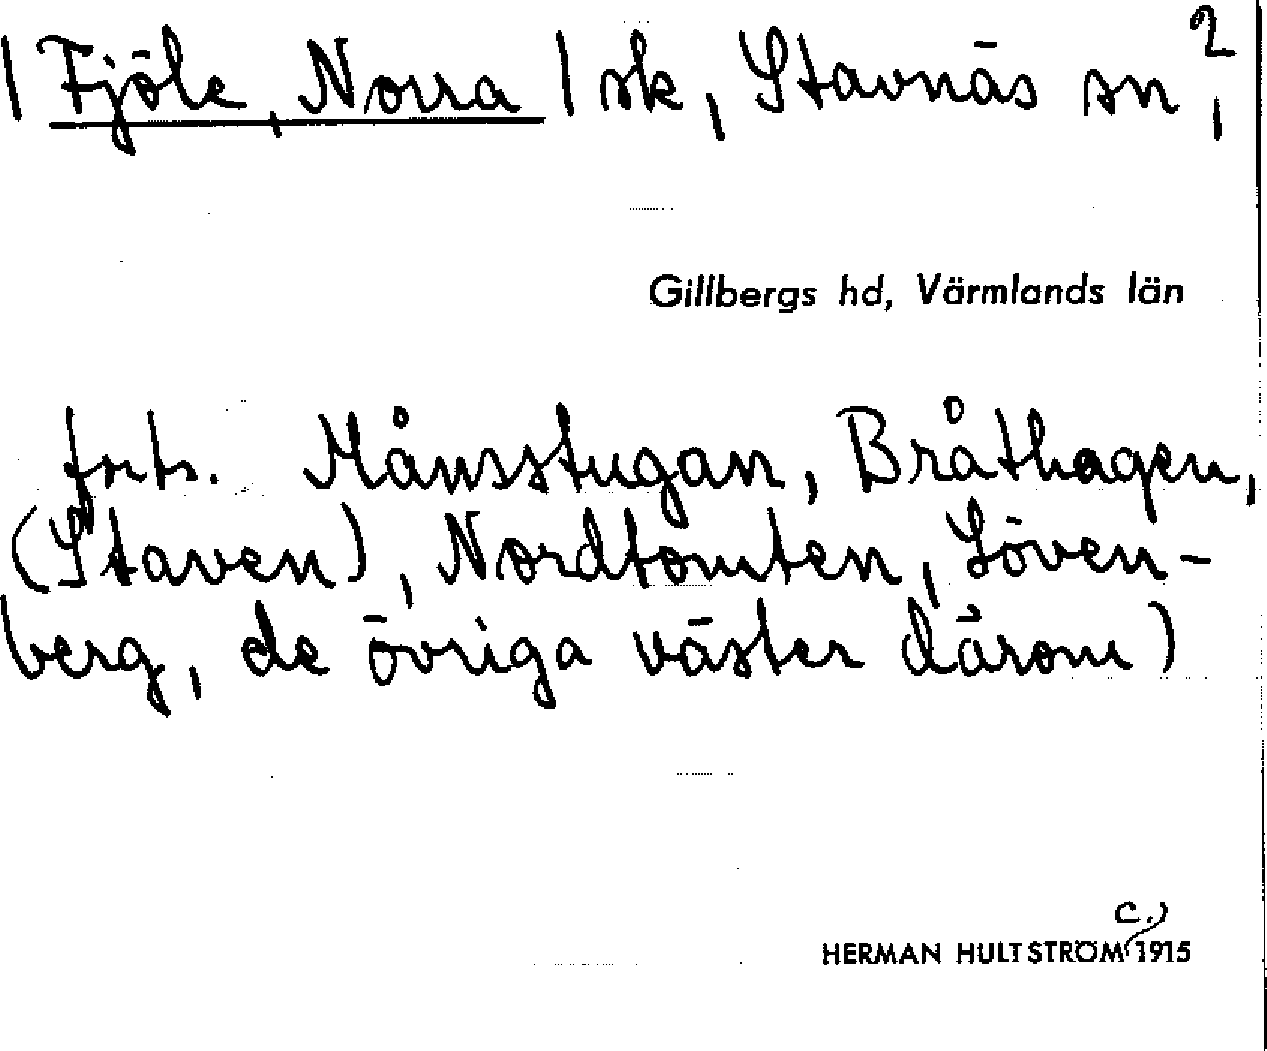 | Fjöle, Norra | sk, Stavnäs sn, 2
Gillbergs hd, Värmlands län
forts. Månsstugan, Bråthagen,
(Staven), Nordtomten, Löven-
berg, de övriga väster därom)
c.)
HERMAN HULTSTRÖM 1915